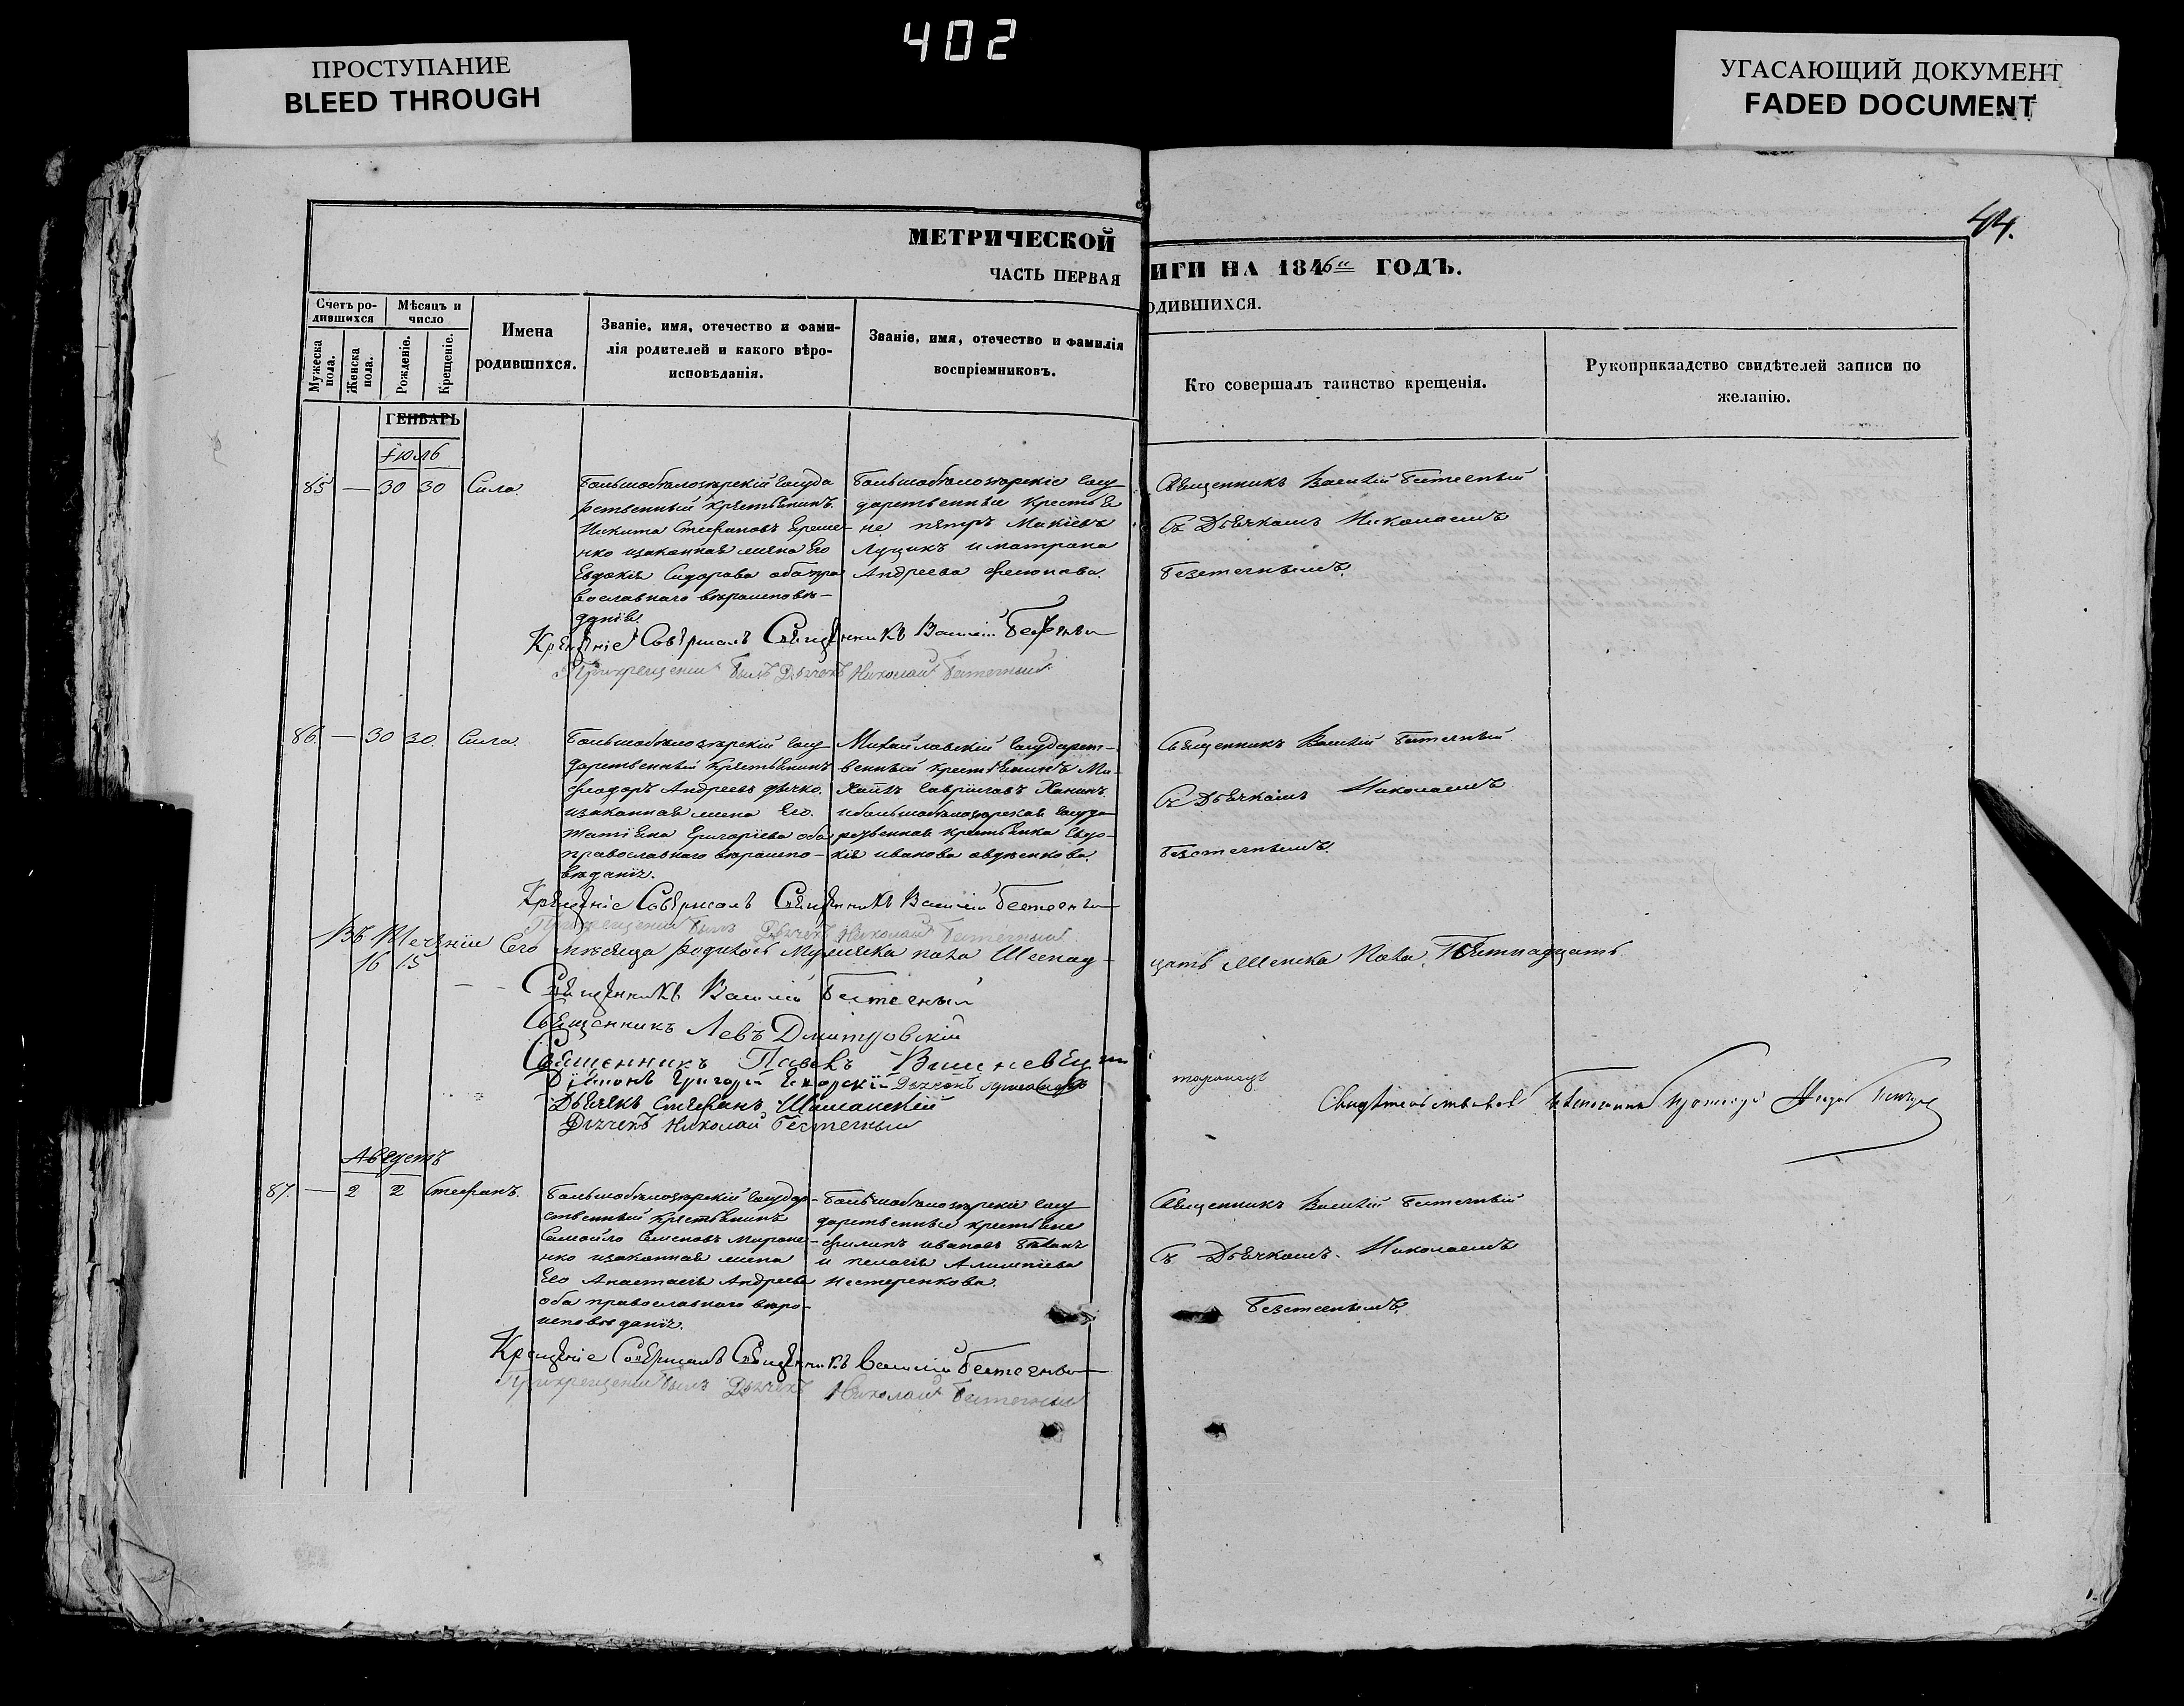 402
ПРОСТУПАНИЕ
BLEED THROUGH
УГАСАЮЩИЙ ДОКУМЕНТ
FADED DOCUMENT
44.
МЕТРИЧЕСКОЙ
ИГИ НА 1846 ГОДЪ.
ЧАСТЬ ПЕРВАЯ
ОДИВШИХСЯ.
Счетъ ро-
дившихся
Мужеска пола.
Женска пола.
Мѣсяцъ и
число
Рожденію.
Крещеніе.
Имена
родившихся.
Званіе, имя, отечество и фами-
лія родителей и какого вѣро-
исповѣданія.
Званіе, имя, отечество и фамилія
воспріемниковъ.
Кто совершалъ таинство крещенія.
Рукоприкладство свидѣтелей записи по
желанію.
ГЕНВАРЬ
Іюль
85 — 30 30 Сила.
Большобѣлозѣрскій госуда
рственный крестьянинъ
Никита Стефановъ Ереме-
нко изаконная жена Его
Евдокія Сидорова оба пра
вославнаго вѣроисповѣ-
данія.
Большобѣлозѣрскіе госу
дарственные крестья
не Петръ Макіевъ
Луцикъ и матрона
Андреева
Священникъ Василій Бѣстечный
Съ Дьячкомъ Николаемъ
Безстечнымъ.
Крещеніе Совершалъ Священникъ Василій
При крещеніи былъ Дьячекъ Николай
86. — 30 30. Сила.
Большобѣлозѣрскій госу-
дарственный крестьянинъ
Феодоръ Андреевъ Дьячко.
изаконная жена Его.
Татіяна Григоріева оба
православнаго вѣроиспо-
вѣданія.
Михайловскій государст-
венный крестьянинъ Ми-
хаилъ Гавріиловъ Ханинъ.
и большобѣлозерская госуда
рственная крестьянка Евдо-
кія иванова авдѣенкова.
Священникъ Василій
Съ Дьячкомъ Николаемъ
Безстечнымъ.
Крещеніе Совершалъ Священникъ Василій
При крещеніи былъ Дьячекъ Николай
Въ Теченіи Сего мѣсяца родилось Мужеска пола Шеснад-
цать Женска Пола Пятнадцать.
16 15
Священникъ Василій
Священникъ Левъ Дмитровскій
Священникъ Павелъ
Діяконъ Григорій
Дьячекъ Стефанъ Шаманскій
Дьячекъ Николай
Августъ
87. — 2 2 Стефанъ.
Большобѣлозѣрскій государ-
ственный крестьянинъ
Самойло Семеновъ Мироне-
нко изаконная жена
Его Анастасія Андреева
оба православнаго вѣро-
исповѣданія.
Большобѣлозѣрскіе госу
дарственные крестьяне
Филипъ ивановъ
и пелагія Алимпіева
нестеренкова.
Священникъ Василій
Съ Дьячкомъ. Николаемъ
Безстечнымъ.
Крещеніе Совершалъ Священникъ Василій
При крещеніи былъ Дьячекъ Николай